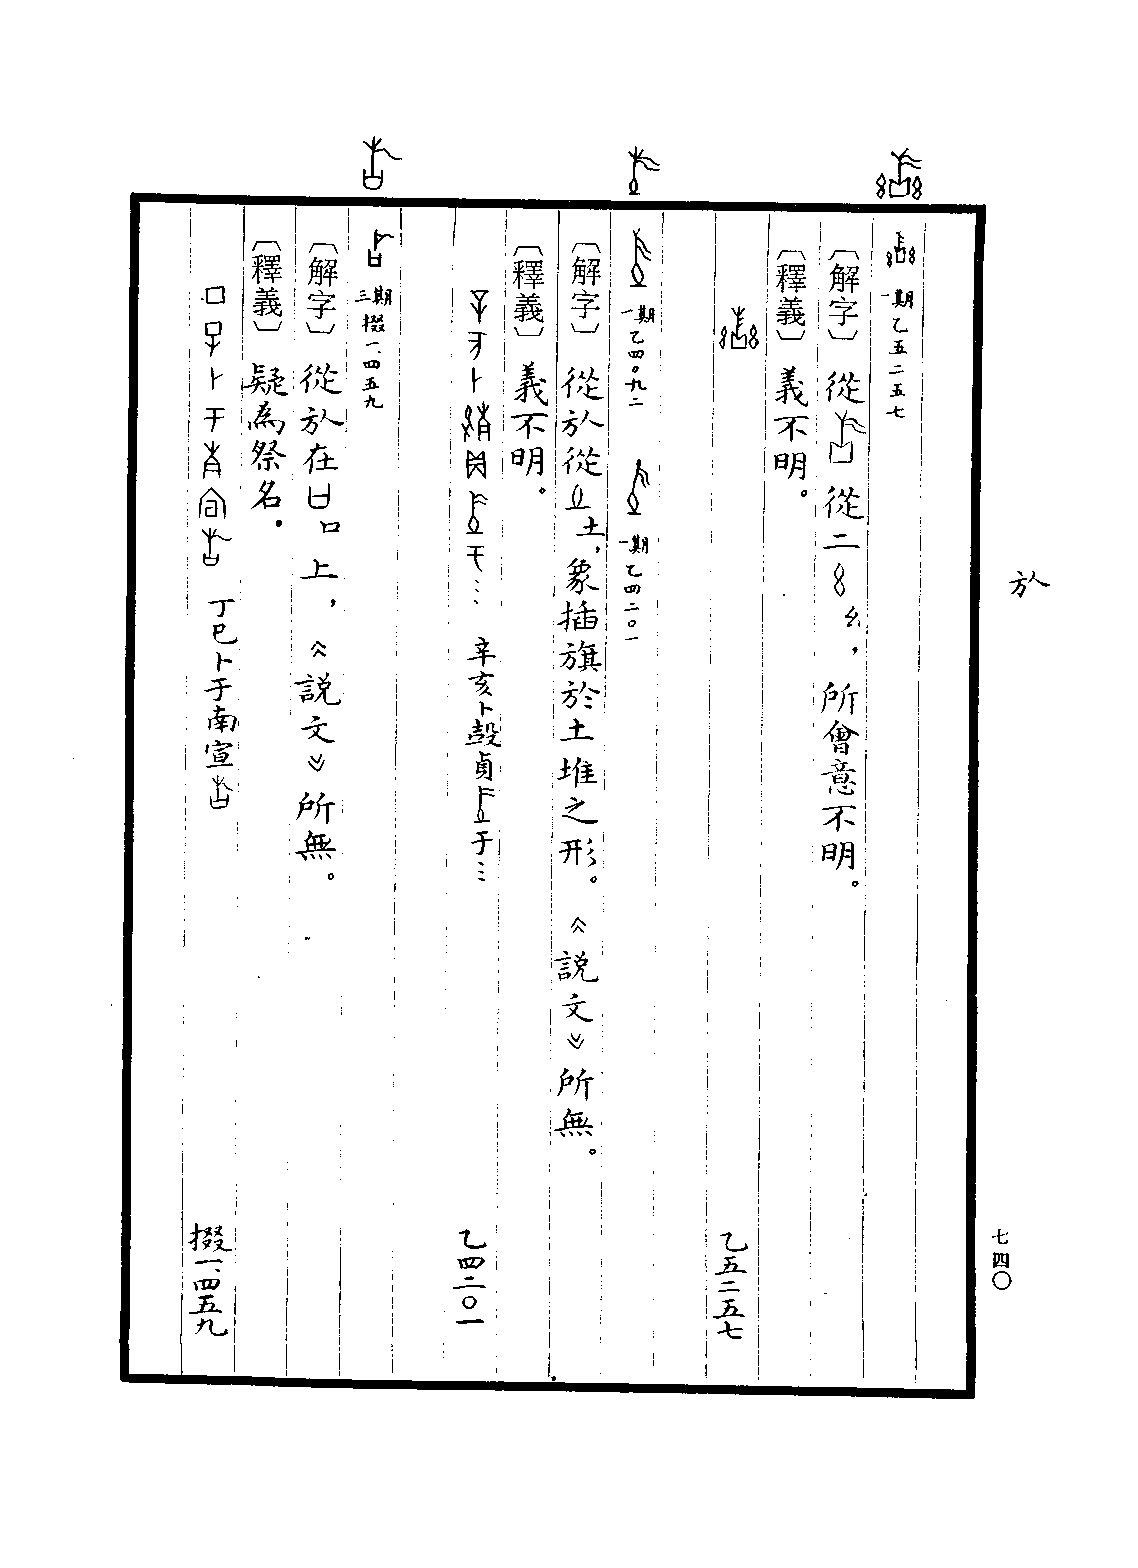 㫃
七四〇
一期乙五二五七
〔解字〕從 從二 幺，所會意不明。
〔釋義〕義不明。
乙五二五七
一期乙四〇九二 一期乙四二〇一
〔解字〕從㫃從 土，象插旗於土堆之形。《説文》所無。
〔釋義〕義不明。
辛亥卜㱿貞 于… 乙四二〇一
三期掇一.四五九
〔解字〕從㫃在 口上，《説文》所無。
〔釋義〕疑為祭名。
丁巳卜于南宣 掇一.四五九